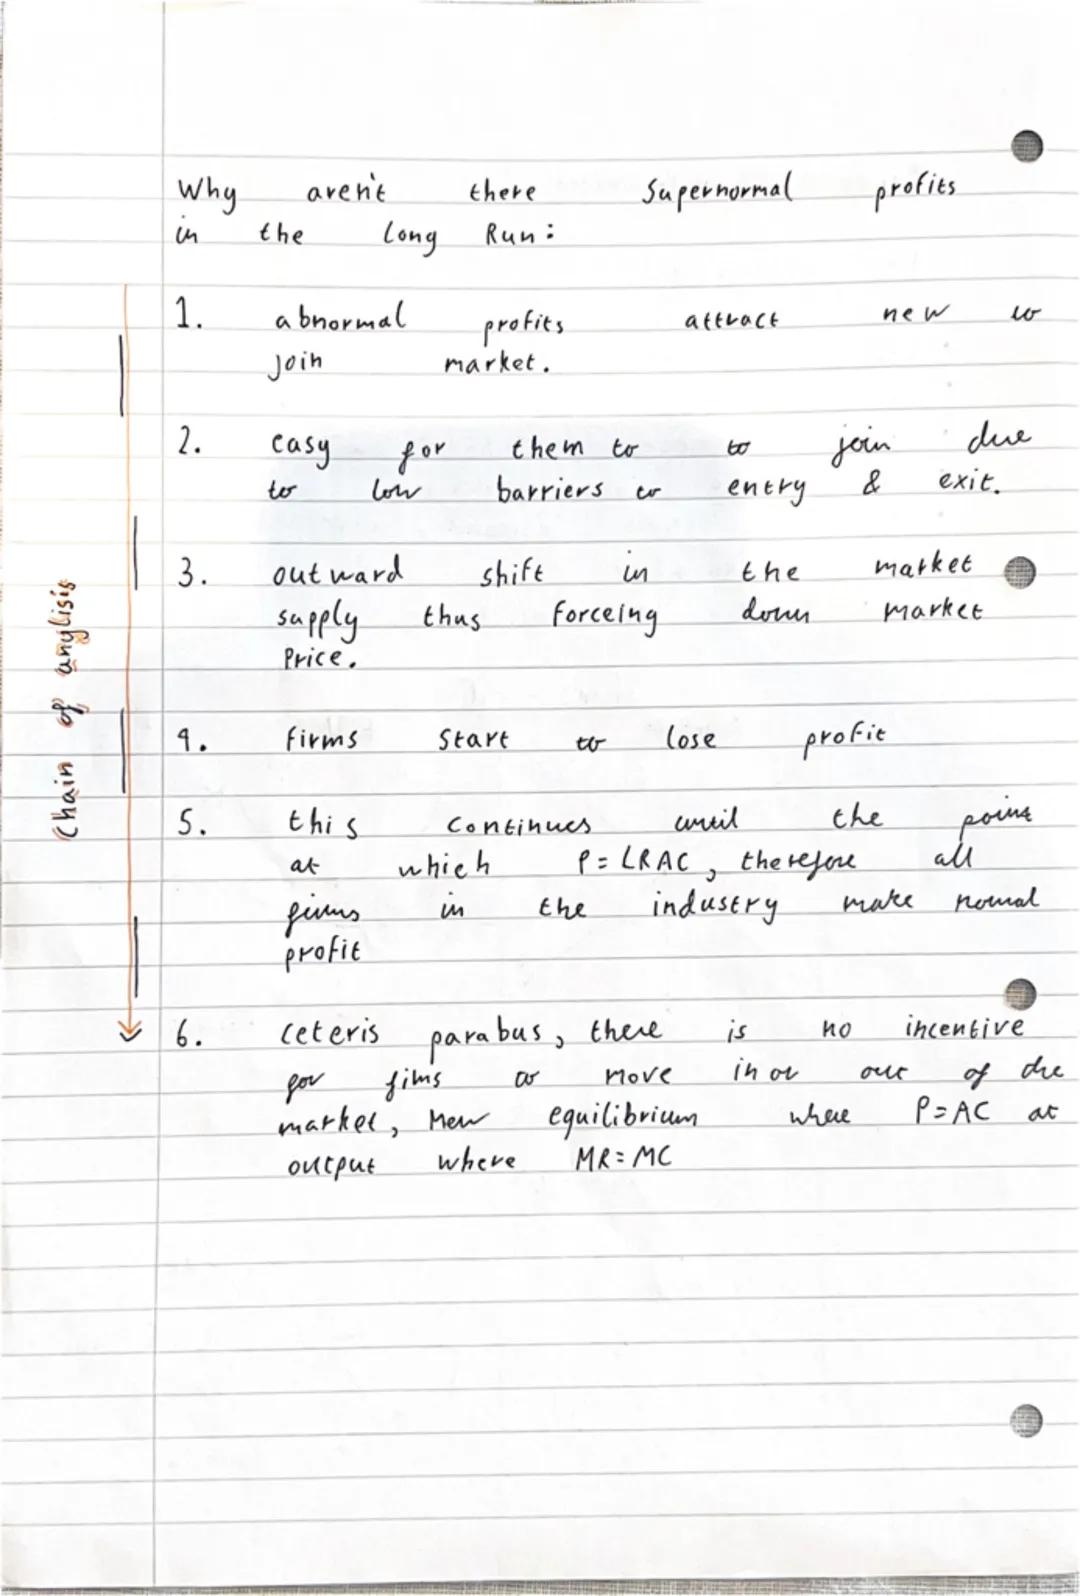 Why aren't there Supernormal profits
in the Long Run:
1. abnormal profits attract new to
join market.
2. easy for them to to join due
to low barriers to entry & exit.
3. outward shift in the market
supply thus forceing down market
Price.
4. firms start to lose profit
5. this continues until the point
at which P=LRAC, therefore all
firms in the industry make normal
profit
6. ceteris parabus, there is no incentive
for fims to move in or out of the
market, New equilibrium where P=AC at
output where MR=MC
Chain of anylisis